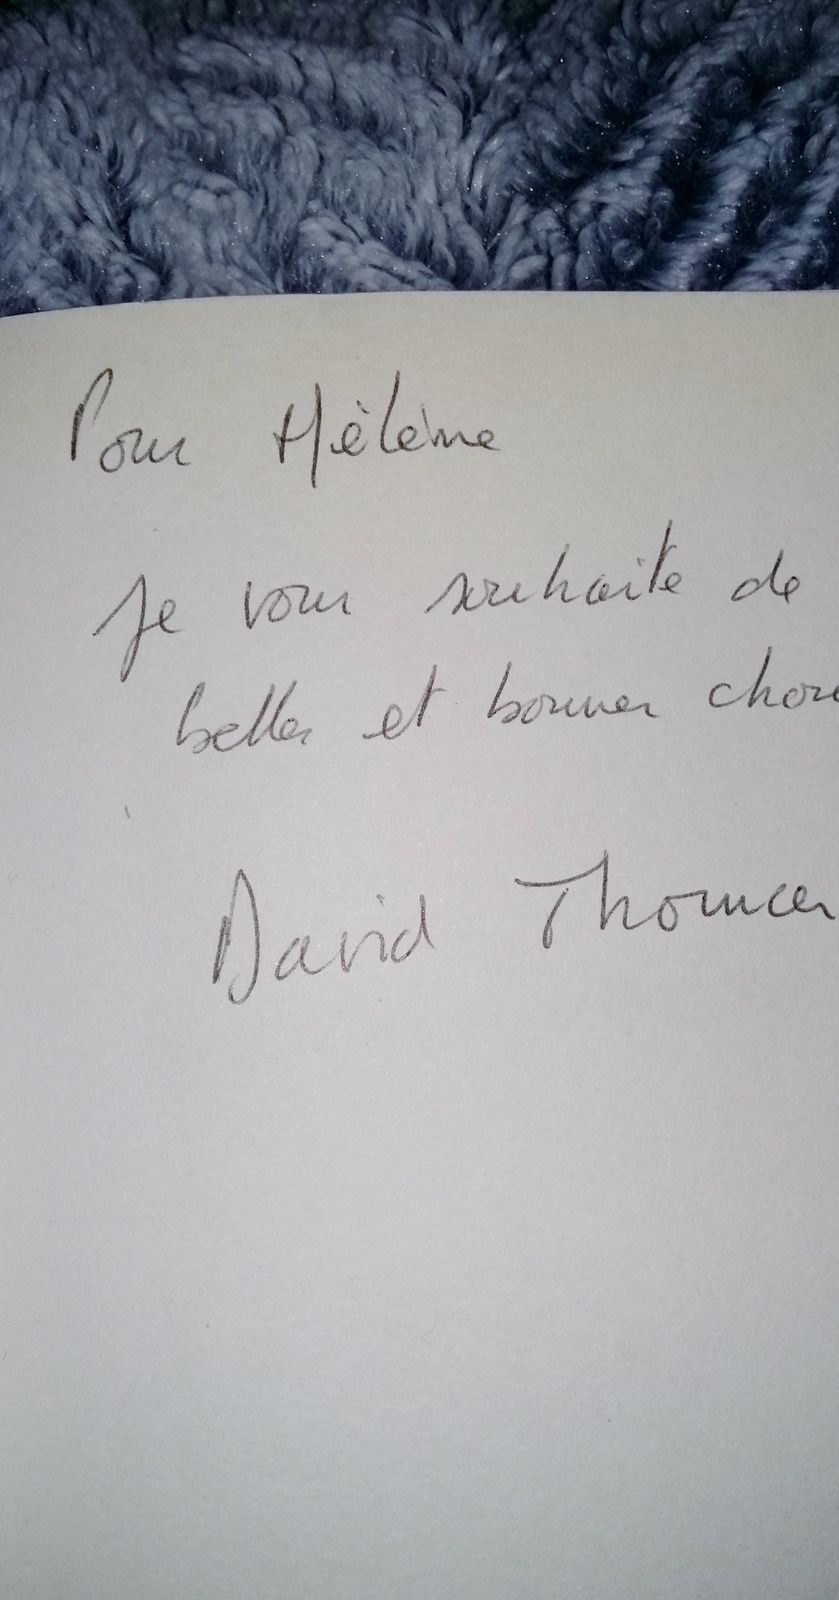 Pour Hélène
Je vous souhaite de
belles et bonnes chose
David Thomas